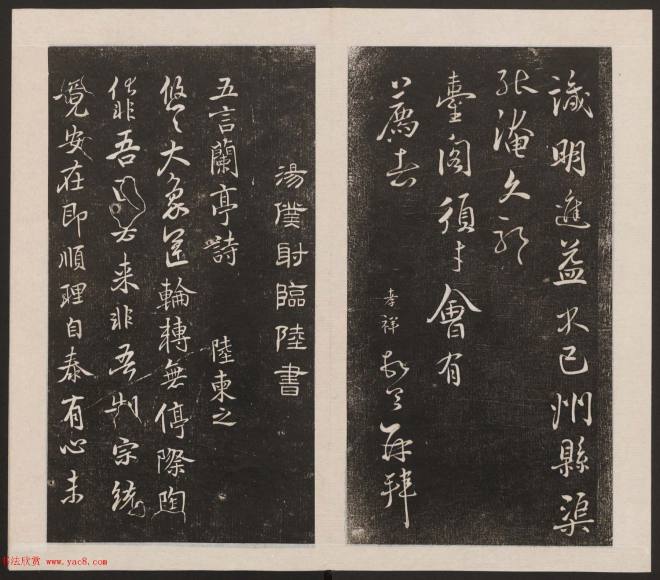 識明進益不已州縣渠
能淹久耶
臺閣須才會有
薦者 孝祥 再拜
湯僕射臨陸書
五言蘭亭詩 陸柬之
悠〻大象運輪轉無停際陶
化非吾因去来非吾制宗統
竟安在即順理自泰有心未
书法欣赏 www.yac8.com